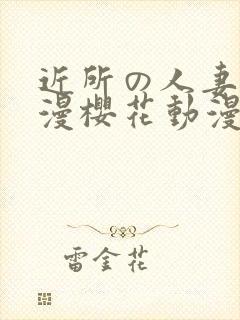 近所の人妻
漫櫻花動漫
雷金花